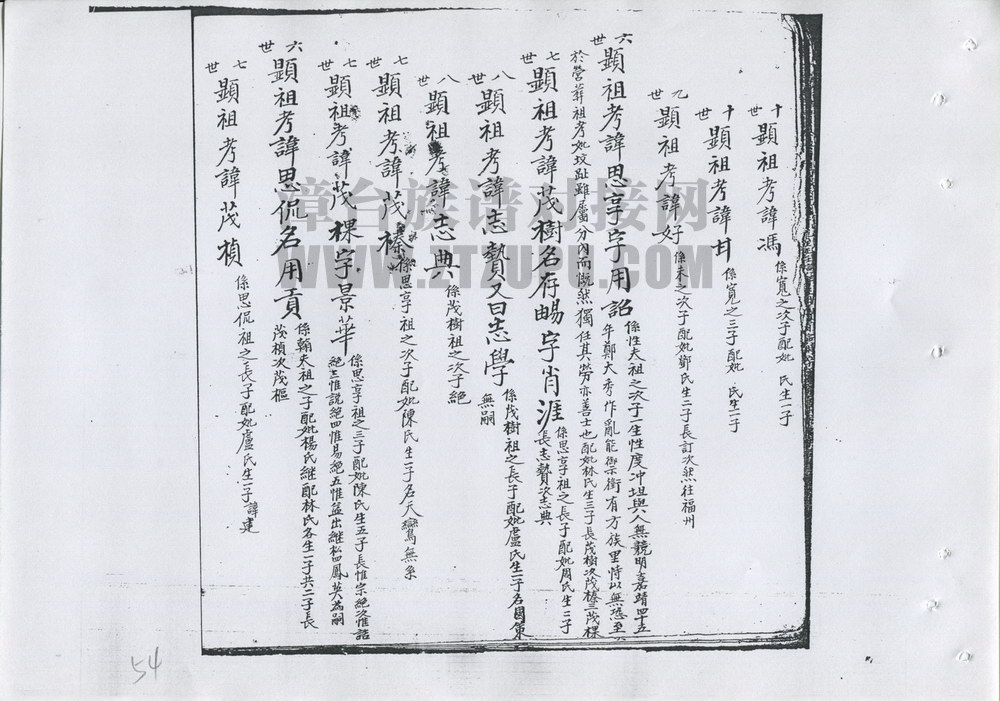 十世 顕祖考諱馮 係寬之次子配妣 氏生一子
十世 顕祖考諱甘 係寬之三子配妣 氏生一子
九世 顕祖考諱好 係未之次子配妣鄭氏生二子長訂次 往福州
六世 顕祖考諱思享字用詔 係性夫祖之次子一生性度冲坦與人無競明嘉靖四十五
年鄭大秀作亂能禦衛有方族里恃以無恐至
於營葬祖考妣坟趾雖属分內而慨然獨任其勞亦善士也配妣林氏生三子長茂樹次茂榛三茂棵
七世 顕祖考諱茂樹名存賜字肖涯 係思享祖之長子配妣周氏生二子
長志贄次志典
八世 顕祖考諱志贄又曰志學 係茂樹祖之長子配妣盧氏生一子名國策
無嗣
八世 顕祖考諱志典 係茂樹祖之次子絕
七世 顕祖考諱茂榛 係思享祖之次子配妣陳氏生一子名天 無系
七世 顕祖考諱茂棵字景華 係思享祖之三子配妣陳氏生五子長惟宗絕次惟詔
絕三惟説絕四惟易絕五惟 出繼松四鳳英為嗣
六世 顕祖考諱思侃名用貢 係翰夫祖之子配妣楊氏継配林氏各生一子共二子長
茂楨次茂樞
七世 顕祖考諱茂楨 係思侃祖之長子配妣盧氏生一子諱建
漳台族谱对接网
WWW.ZTZUPU.COM
54